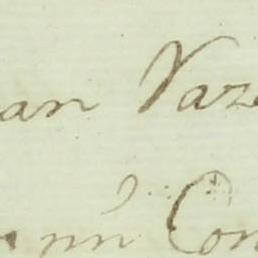 an Vaz
nn Con